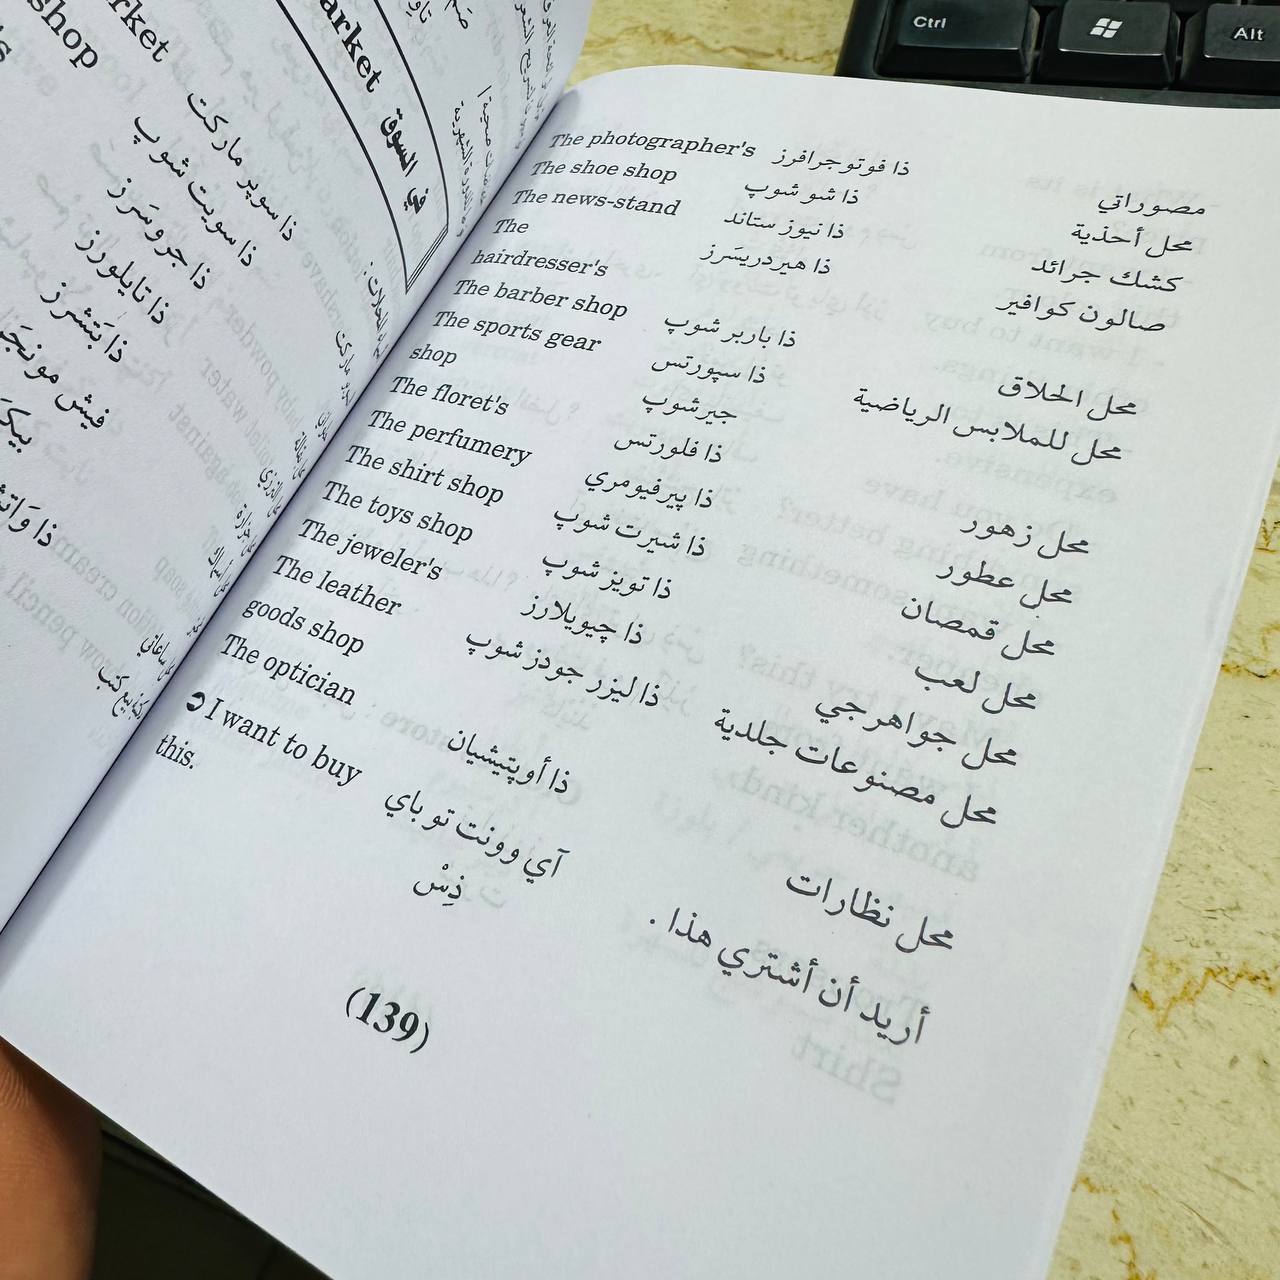 arket
shop
's
ذا سوپر ماركت
ذا سويت شوپ
ذا جروسَرز
ذا تايلورز
ذا بَتشرز
فيش
ذا
arket في السوق
The photographer's ذا فوتوجرافرز مصوراتي
The shoe shop ذا شو شوپ محل أحذية
The news-stand ذا نيوز ستاند كشك جرائد
The ذا هيردريسَرز صالون كوافير
hairdresser's
The barber shop ذا باربر شوپ محل الحلاق
The sports gear ذا سپورتس محل للملابس الرياضية
shop جيرشوپ
The floret's ذا فلورتس محل زهور
The perfumery ذا پيرفيومري محل عطور
The shirt shop ذا شيرت شوپ محل قمصان
The toys shop ذا تويز شوپ محل لعب
The jeweler's ذا چيويلارز محل جواهرجي
The leather ذا ليزر جودز شوپ محل مصنوعات جلدية
goods shop
The optician ذا أوپتيشيان محل نظارات
I want to buy آي وونت تو باي أريد أن أشتري هذا .
this. ذِسْ
(139)
Ctrl
Alt